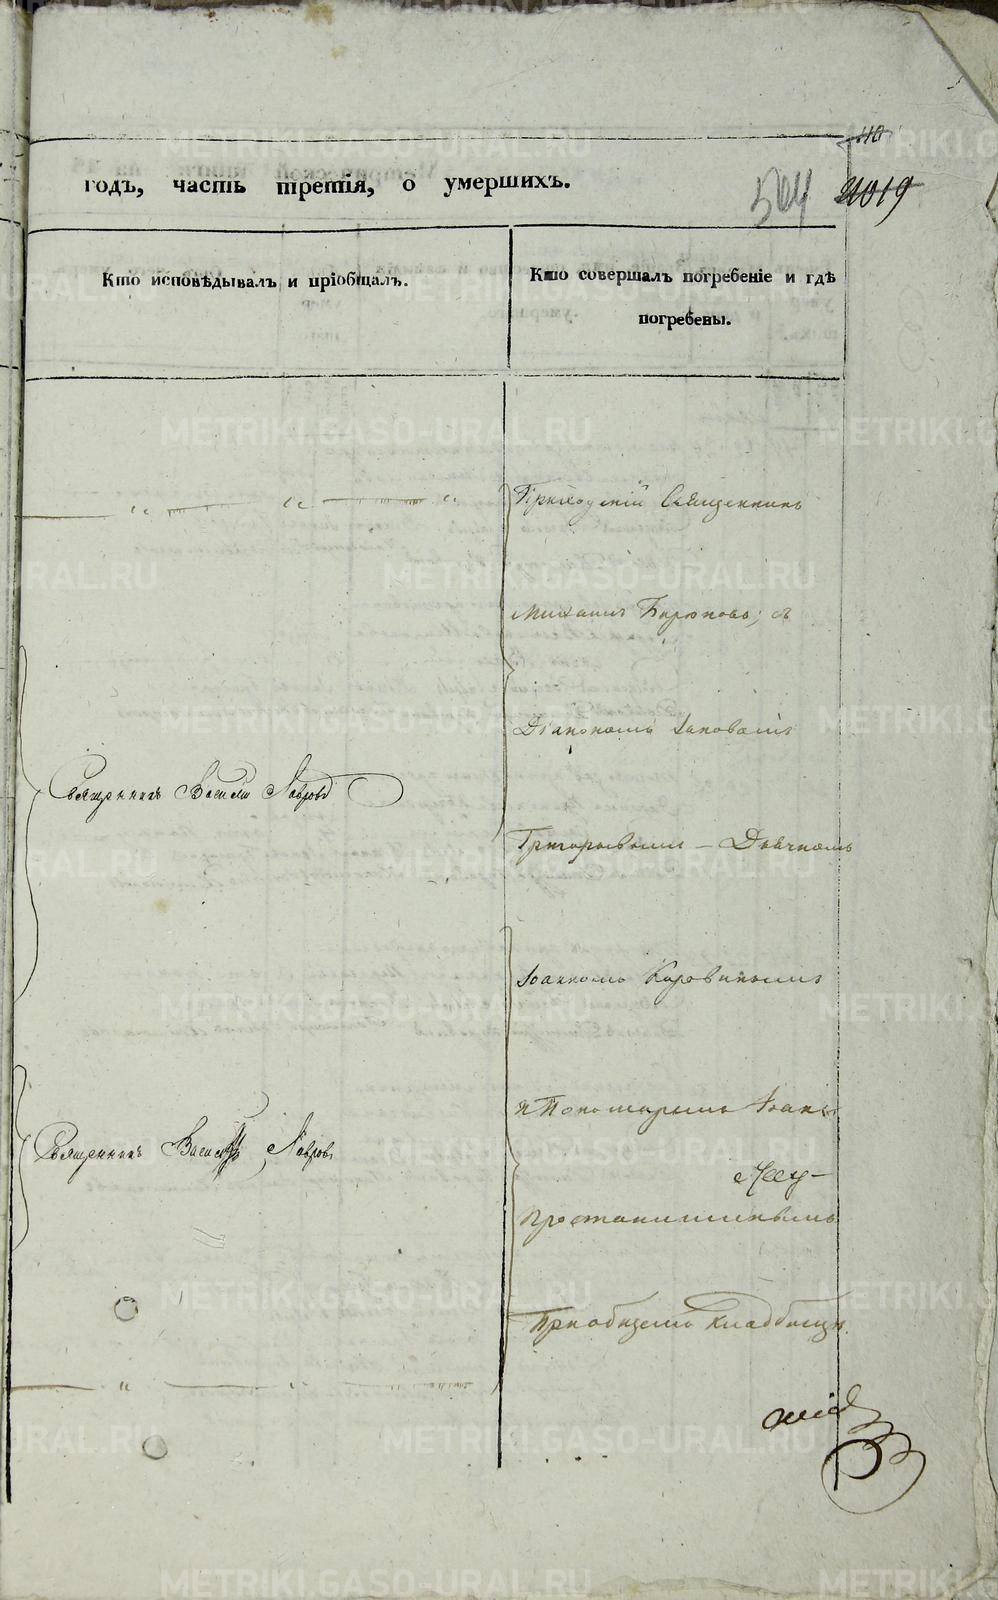 110
годъ, часть третія, о умершихъ.
564 21019
Кто исповѣдывалъ и пріобщалъ.
Кто совершалъ погребеніе и гдѣ
погребены.
Приходскій Священникъ
Михаилъ Бирюковъ; съ
Діакономъ Іаковомъ
Священникъ Василій Лавровъ
Григорьевымъ – Дьячкомъ
Іоанномъ Коровинымъ
и Пономаремъ Іоан
Священникъ Василій Лавровъ
Простанишинымъ
При общемъ кладбищѣ.
METRIKI.GASO-URAL.RU